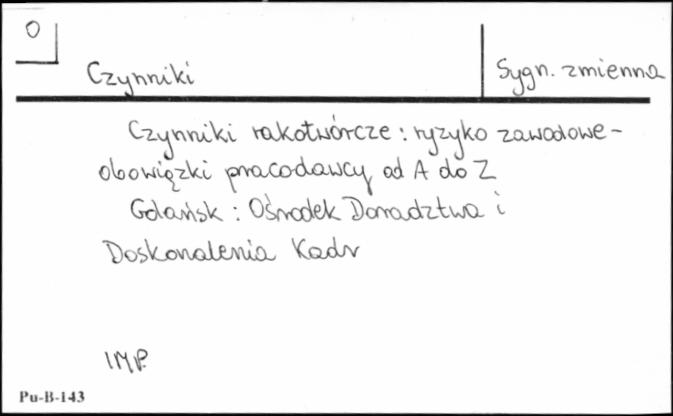 O
Czynniki
Sygn. zmienna
Czynniki rakotwórcze : ryzyko zawodowe -
obowiązki pracodawcy od A do Z
Gdańsk : Ośrodek Doradztwa i
Doskonalenia Kadr
IMP.
Pu-B-143